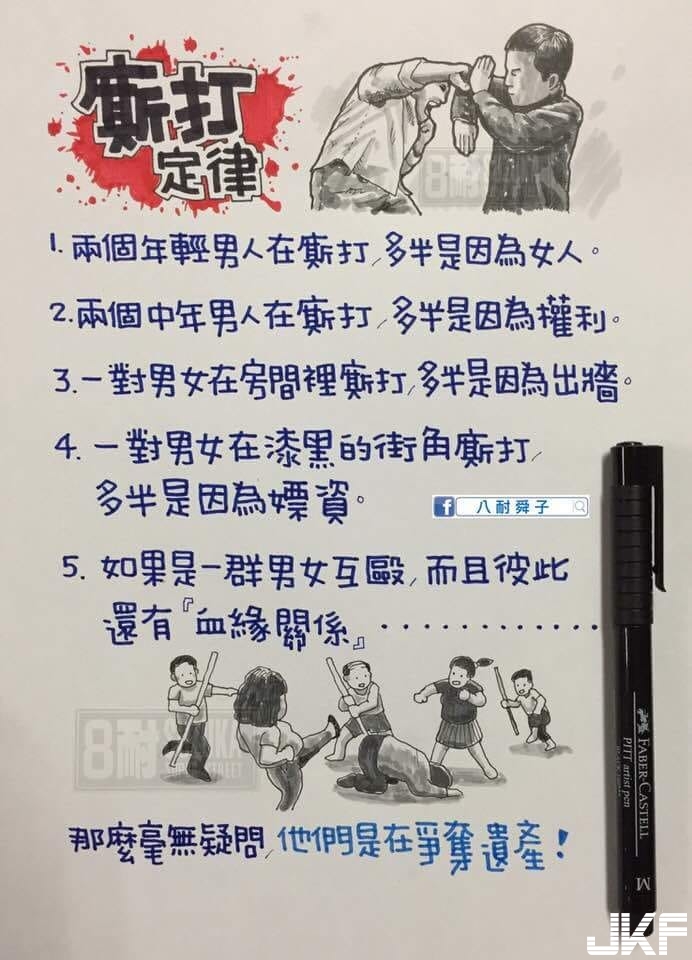 廝打
定律
1. 兩個年輕男人在廝打,多半是因為女人。
2. 兩個中年男人在廝打,多半是因為權利。
3. 一對男女在房間裡廝打,多半是因為出牆。
4. 一對男女在漆黑的街角廝打,
多半是因為嫖資。
f 八耐舜子
5. 如果是一群男女互毆,而且彼此
還有『血緣關係』............
那麼毫無疑問,他們是在爭奪遺產!
FABER-CASTELL
PITT artist pen
M
JKF